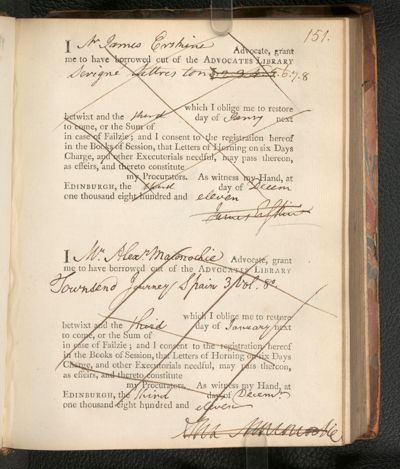 151.
I Mr James Erskine Advocate, grant
me to have borrowed out of the ADVOCATES LIBRARY
Sevigne Lettres tom 5.6.7.8
which I oblige me to restore
betwixt and the third day of Janry next
to come, or the Sum of
in case of Failzie; and I consent to the registration hereof
in the Books of Session, that Letters of Horning on six Days
Charge, and other Executorials needful, may pass thereon,
as effeirs, and thereto constitute
my Procurators. As witness my Hand, at
EDINBURGH, the third day of Decem
one thousand eight hundred and eleven
James Erskine
I Mr. Alexr. Maconochie Advocate, grant
me to have borrowed out of the ADVOCATES LIBRARY
Townsend Journey Spain 3 vol. 8o
which I oblige me to restore
betwixt and the third day of January next
to come, or the Sum of
in case of Failzie; and I consent to the registration hereof
in the Books of Session, that Letters of Horning on six Days
Charge, and other Executorials needful, may pass thereon,
as effeirs, and thereto constitute
my Procurators. As witness my Hand, at
EDINBURGH, the third day of Decemr
one thousand eight hundred and eleven
Maconochie